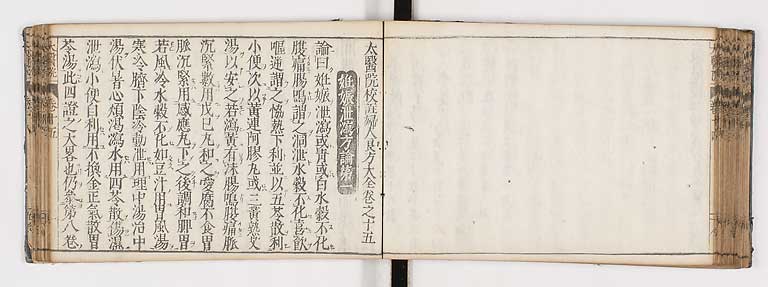 太醫院校註婦人良方大全卷之十五
妊娠泄瀉方論第一
論曰妊娠泄瀉或青或白水穀不化
腹痛腸鳴謂之洞泄水穀不化喜飲
嘔逆謂之協熱下利並以五苓散利
小便次以黃連阿膠丸或三黃熟艾
湯以安之若瀉黃有沫腸鳴腹痛脈
沉緊數用戊己丸和之噯腐不食胃
脈沉緊用感應丸下之後調和脾胃
若風冷水穀不化如豆汁用胃風湯
寒冷臍下陰冷動泄用理中湯治中
湯伏暑心煩渴瀉水用四苓散傷濕
泄瀉小便自利用不換金正氣散胃
苓湯此四證之大畧也仍參第八卷